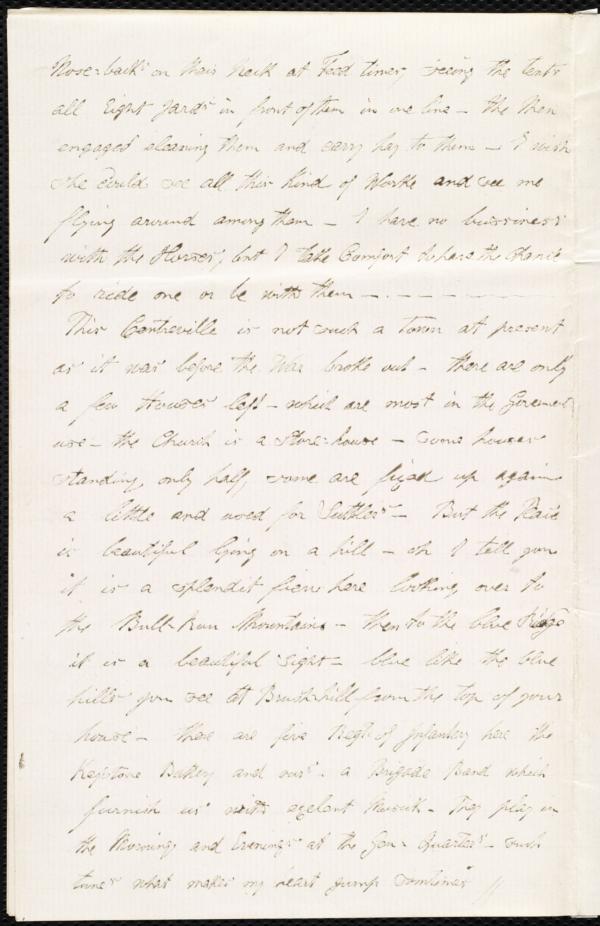 Nose-back's on their Neck at Feed time, seeing the tents
all Eight Yard's in front of them in one line – the Men
engaged cleaning them and carry hay to them – I wish
she Could see all this kind of Works and see me
flying around among them – I have no bussiness
with the Horses, but I take Comfort to have the Chance
to ride one or be with them – . – . – – –
This Centreville is not such a town at present
as it was before the War broke out – there are only
a few Houses left – which are most in the Goverment
use – the Church is a Store-house – some houses
standing, only half, some are fixed up again
a little and used for Suttler's – But the Place
is beautiful lying on a hill – oh I tell you
it is a splendit view here looking over to
the Bull-Run Mountains – then to the blue Ridge
it is a beautiful sight – blue like the blue
hills you see at Brushhill from the top of your
house – there are five Regt of Infantry here the
Keystone Battery and our's – a Brigade Band which
furnish us with exelent Musick – They play in
the Morning and Evening's at the Gen: Quarter's – such
tunes what makes my heart jump somtimes //